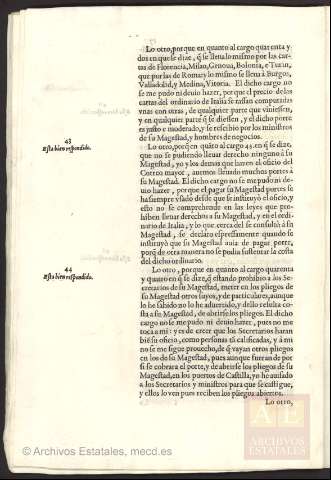 Lo otro, porque en quanto al cargo quarenta y
dos en que se dize, q̃ se lleua lo mismo por las car
tas de Florencia, Milan, Genoua, Bolonia, e Turin,
que por las de Roma: y lo mismo se lleua à Burgos,
Valladolid, y Medina, Vitoria. El dicho cargo no
se me pudo ni deuio hazer, porque el precio de las
cartas del ordinario de Italia se tassan computadas
vnas con otras, de qualquier parte que viniessen,
y en qualquier parte q̃ se diessen, y el dicho porte
es justo e moderado, y se rescibio por los ministros
de su Magestad, y hombres de negocios.
43
Esta bien respondido.
Lo otro, porq̃ en quãto al cargo 43. en q̃ se dize,
que no se pudiendo lleuar derecho ninguno à su
Magestad, yo y los demas que hazen el oficio del
Correo mayor, auemos lleuado muchos portes à
su Magestad. El dicho cargo no se me pudo ni de-
uio hazer, porque el pagar su Magestad portes se
ha siempre vsado desde que se instituyò el oficio, y
esto no se comprehende en las leyes que pro-
hiben lleuar derechos a su Magestad, y en el ordi-
nario de Italia, y lo que cerca del se consultò à su
Magestad, se declarò espressamente quando se
instituyò que su Magestad auia de pagar porte,
porq̃ de otra manera no se podia sustentar la costa
del dicho ordinario.
44
Esta bien respondido.
Lo otro, porque en quanto al cargo quarenta
y quatro en q̃ se dize, q̃ estando prohibido a los Se-
cretarios de su Magestad, meter en los pliegos de
su Magestad otros suyos, y de particulares, aunque
lo he sabido no lo he aduertido, y dello resulta co-
sta a su Magestad, de abrirse los pliegos. El dicho
cargo no se me pudo ni deuio hazer, pues no me
toca a mi: y es de creer que los Secretarios haran
biẽ su oficio, como personas tã calificadas, y a mi
no se me sigue prouecho, de q̃ vayan otros pliegos
en los de su Magestad, pues aunque fueran de por
si se cobrara el porte, y de abrirse los pliegos de su
Magestad, en los puertos de Castilla, yo he auisado
a los Secretarios y ministros para que se castigue,
y ellos lo ven pues reciben los pliegos abiertos.
Lo otro,
© Archivos Estatales, mecd.es
AE
ARCHIVOS
ESTATALES